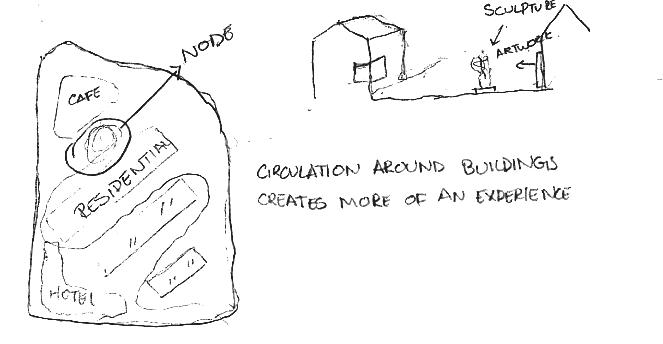 NODE
CAFE
RESIDENTIAL
" "
" "
HOTEL
SCULPTURE
ARTWORK
CIRCULATION AROUND BUILDINGS
CREATES MORE OF AN EXPERIENCE